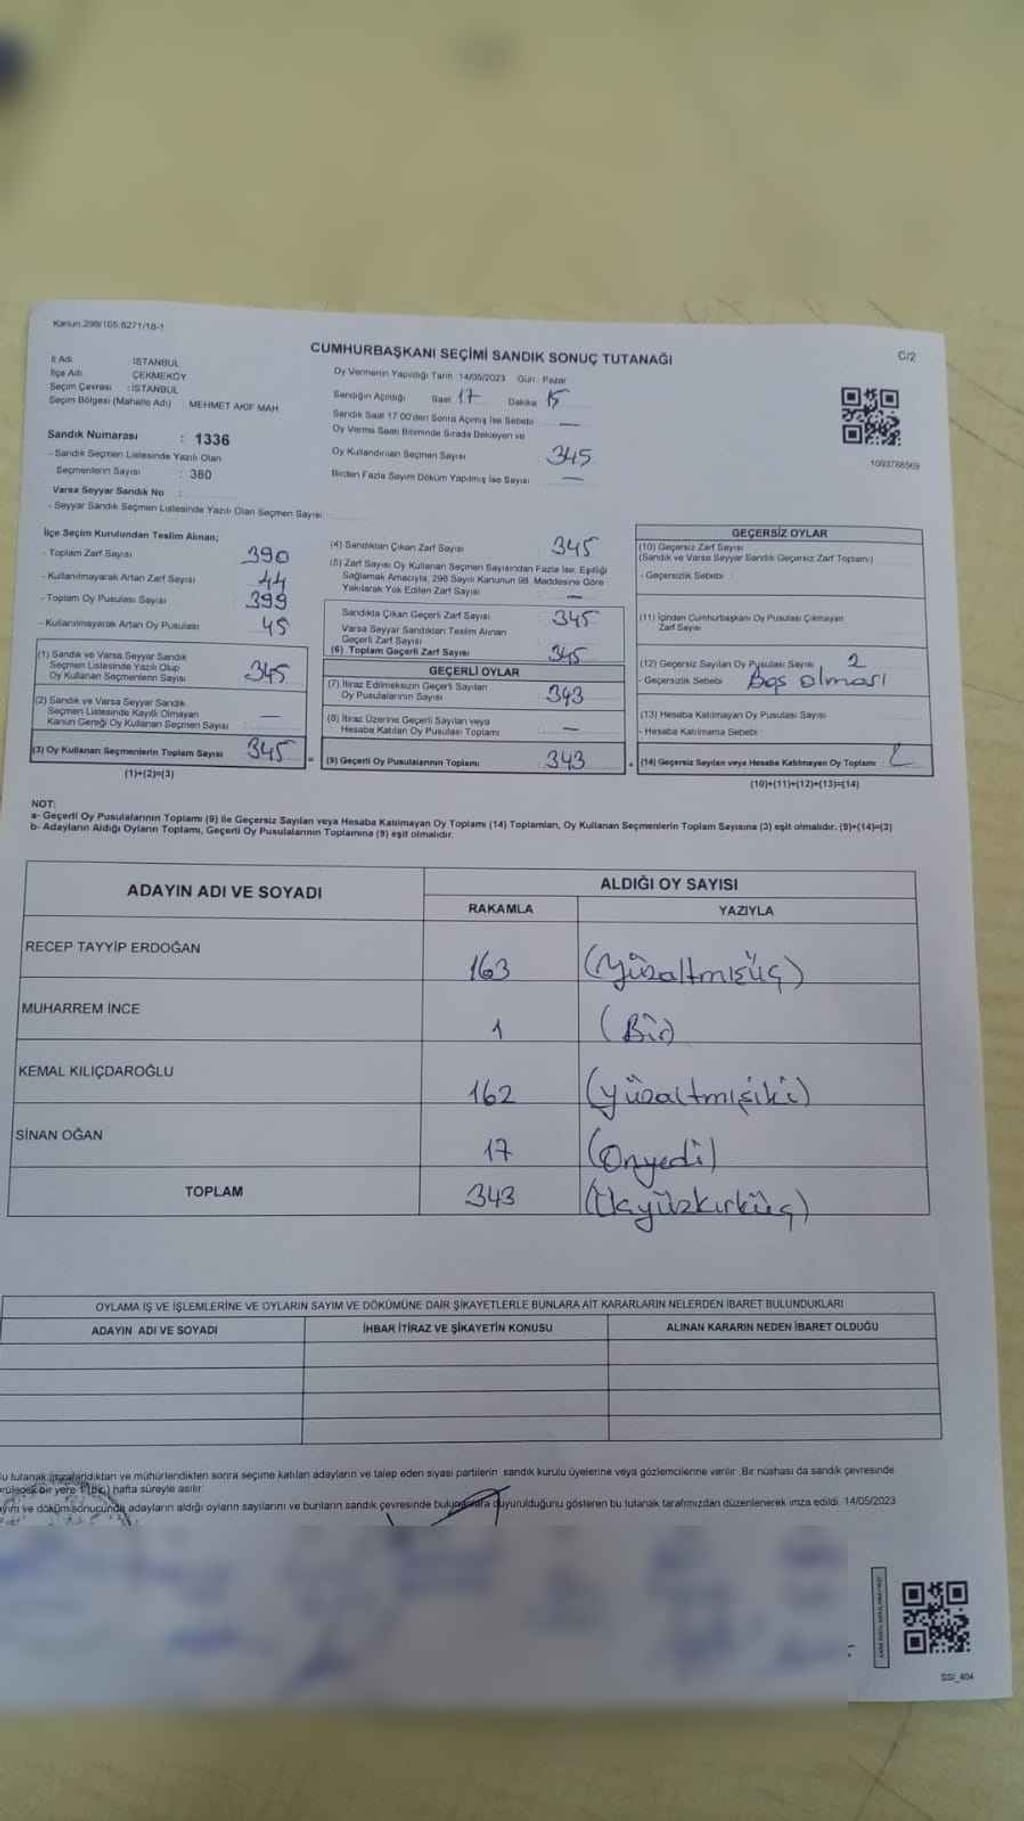 Kanun:298/105,6271/18-1
CUMHURBAŞKANI SEÇİMİ SANDIK SONUÇ TUTANAĞI
C/2
İl Adı : İSTANBUL
İlçe Adı : ÇEKMEKÖY
Seçim Çevresi : İSTANBUL
Seçim Bölgesi (Mahalle Adı) : MEHMET AKİF MAH.
Sandık Numarası : 1336
- Sandık Seçmen Listesinde Yazılı Olan
Seçmenlerin Sayısı : 380
Varsa Seyyar Sandık No :
- Seyyar Sandık Seçmen Listesinde Yazılı Olan Seçmen Sayısı:
Oy Vermenin Yapıldığı Tarih : 14/05/2023 Gün : Pazar
Sandığın Açıldığı Saat 17 Dakika 15
Sandık Saat 17.00'den Sonra Açılmış İse Sebebi —
Oy Verme Saati Bitiminde Sırada Bekleyen ve
Oy Kullandırılan Seçmen Sayısı 345
Birden Fazla Sayım Döküm Yapılmış İse Sayısı —
1093788569
İlçe Seçim Kurulundan Teslim Alınan;
- Toplam Zarf Sayısı 390
- Kullanılmayarak Artan Zarf Sayısı 44
- Toplam Oy Pusulası Sayısı 399
- Kullanılmayarak Artan Oy Pusulası 45
(1) Sandık ve Varsa Seyyar Sandık
Seçmen Listesinde Yazılı Olup
Oy Kullanan Seçmenlerin Sayısı 345
(2) Sandık ve Varsa Seyyar Sandık
Seçmen Listesinde Kayıtlı Olmayan
Kanun Gereği Oy Kullanan Seçmen Sayısı —
(3) Oy Kullanan Seçmenlerin Toplam Sayısı 345
(1)+(2)=(3)
(4) Sandıktan Çıkan Zarf Sayısı 345
(5) Zarf Sayısı Oy Kullanan Seçmen Sayısından Fazla İse, Eşitliği
Sağlamak Amacıyla, 298 Sayılı Kanunun 98. Maddesine Göre
Yakılarak Yok Edilen Zarf Sayısı —
Sandıkta Çıkan Geçerli Zarf Sayısı 345
Varsa Seyyar Sandıktan Teslim Alınan
Geçerli Zarf Sayısı
(6) Toplam Geçerli Zarf Sayısı 345
GEÇERLİ OYLAR
(7) İtiraz Edilmeksizin Geçerli Sayılan
Oy Pusulalarının Sayısı 343
(8) İtiraz Üzerine Geçerli Sayılan veya
Hesaba Katılan Oy Pusulası Toplamı —
(9) Geçerli Oy Pusulalarının Toplamı 343
GEÇERSİZ OYLAR
(10) Geçersiz Zarf Sayısı
(Sandık ve Varsa Seyyar Sandık Geçersiz Zarf Toplamı)
- Geçersizlik Sebebi :
(11) İçinden Cumhurbaşkanı Oy Pusulası Çıkmayan
Zarf Sayısı
(12) Geçersiz Sayılan Oy Pusulası Sayısı 2
- Geçersizlik Sebebi : Boş olması
(13) Hesaba Katılmayan Oy Pusulası Sayısı
- Hesaba Katılmama Sebebi :
(14) Geçersiz Sayılan veya Hesaba Katılmayan Oy Toplamı : 2
(10)+(11)+(12)+(13)=(14)
NOT:
a- Geçerli Oy Pusulalarının Toplamı (9) ile Geçersiz Sayılan veya Hesaba Katılmayan Oy Toplamı (14) Toplamları, Oy Kullanan Seçmenlerin Toplam Sayısına (3) eşit olmalıdır. (9)+(14)=(3)
b- Adayların Aldığı Oyların Toplamı, Geçerli Oy Pusulalarının Toplamına (9) eşit olmalıdır.
ADAYIN ADI VE SOYADI
ALDIĞI OY SAYISI
RAKAMLA YAZIYLA
RECEP TAYYİP ERDOĞAN 163 (Yüzaltmışüç)
MUHARREM İNCE 1 (Bir)
KEMAL KILIÇDAROĞLU 162 (yüzaltmışiki)
SİNAN OĞAN 17 (Onyedi)
TOPLAM 343 (Üçyüzkırküç)
OYLAMA İŞ VE İŞLEMLERİNE VE OYLARIN SAYIM VE DÖKÜMÜNE DAİR ŞİKAYETLERLE BUNLARA AİT KARARLARIN NELERDEN İBARET BULUNDUKLARI
ADAYIN ADI VE SOYADI İHBAR İTİRAZ VE ŞİKAYETİN KONUSU ALINAN KARARIN NEDEN İBARET OLDUĞU
u tutanak imzalandıktan ve mühürlendikten sonra seçime katılan adayların ve talep eden siyasi partilerin sandık kurulu üyelerine veya gözlemcilerine verilir. Bir nüshası da sandık çevresinde
bir yere 1 (bir) hafta süreyle asılır.
ayım ve döküm sonucunda adayların aldığı oyların sayılarını ve bunların sandık çevresinde duyurulduğunu gösteren bu tutanak tarafımızdan düzenlenerek imza edildi. 14/05/2023
SSI_404